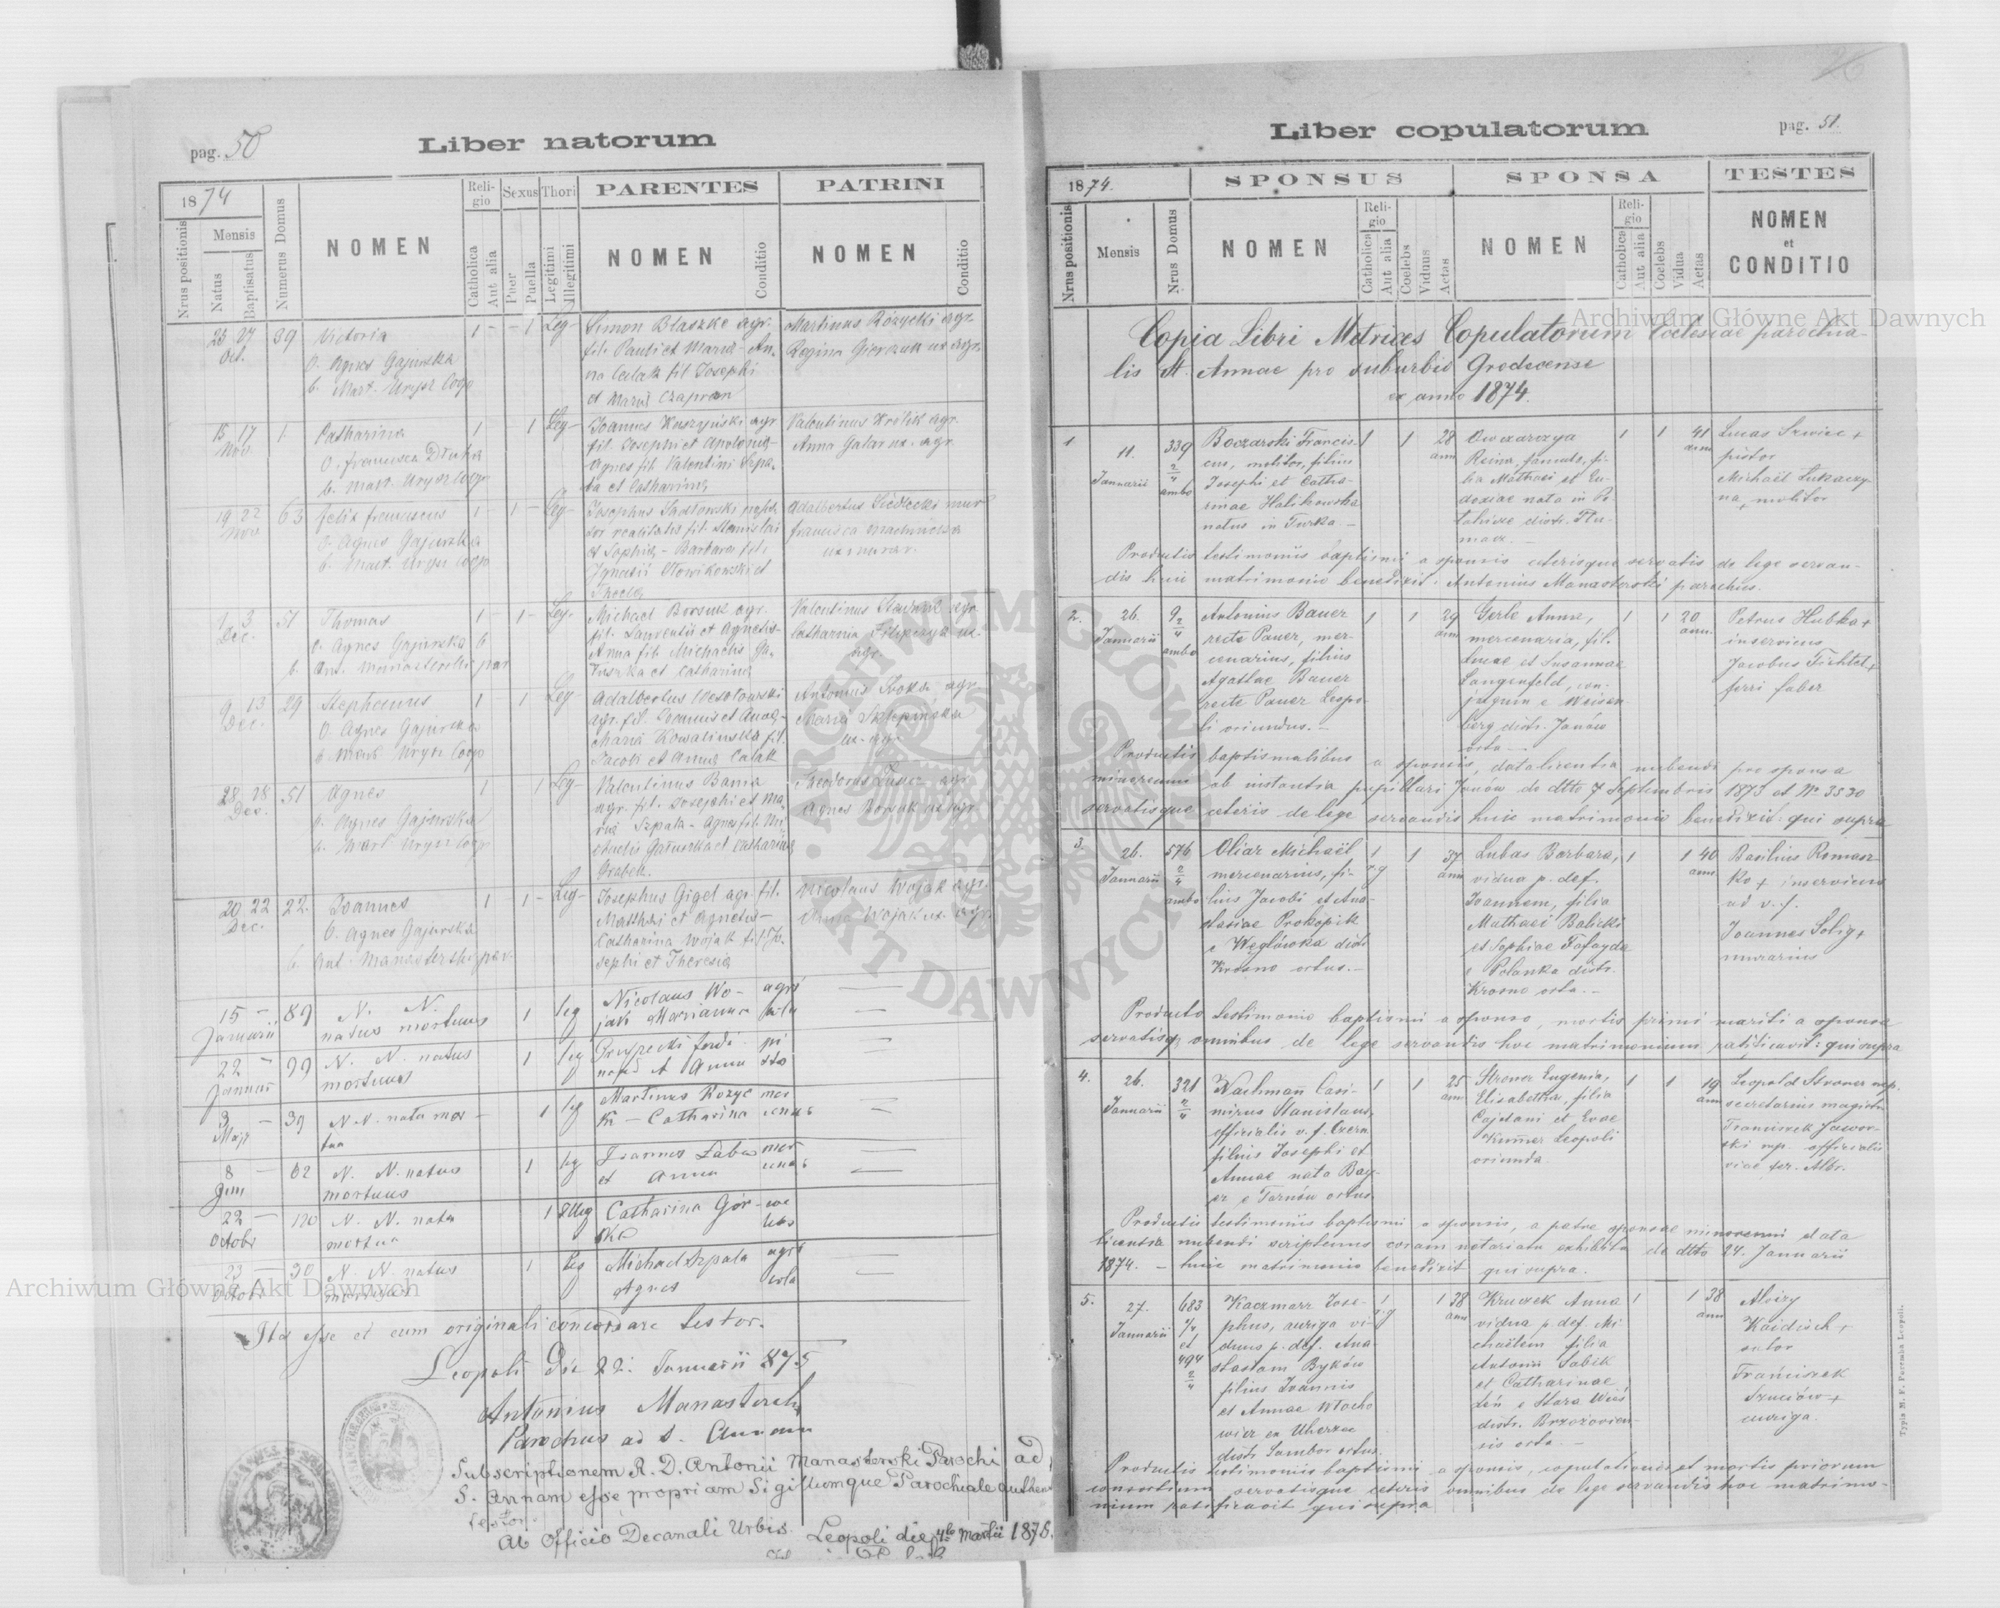 pag. 50
Liber natorum
1874
Nrus positionis
Mensis
Natus
Baptisatus
Numerus Domus
NOMEN
Religio
Catholica
Aut alia
Sexus
Puer
Puella
Thori
Legitimi
Illegitimi
PARENTES
NOMEN
Conditio
PATRINI
NOMEN
Conditio
25 27 Oct. 39 Victoria 1 - - 1 Leg- Simon Blaszke agr. Martinus Różycki agr.
O. Agnes Gajurska fil. Pauli et Maria - An- Regina
b. Mart. Uryń Coop na Calak fil Josephi
et Maria Czapran
15 17 Nov. 1. Catharina 1 - 1 Leg- Joannes agr Valentinus Krolik agr.
O. Francisca fil. Josephi et Apolonia Anna Galas ux. agr
b. Mart. Uryń Coop Agnes fil Valentini Szpa-
la et Catharina
19 22 Nov 63 Felix Franciscus 1 - 1 - Leg- Josephus Sadlowski Adalbertus Siedlecki mur
O. Agnes Gajurska sor realitatis fil. Stanislai Francisca
b. Mart. Uryń Coop et Sophia - Barbara fil. ux murar.
Ignatii Nowikowski et
Thecla
1 3 Dec. 51 Thomas 1 - 1 - Leg. Michael agr. Valentinus agr
O. Agnes Gajurska fil. Laurentii et Agnetis- Catharina Filipczyk ux.
b. Ant. Manasterski par Anna fil Michaelis Ga- agr.
et Catharina
9 13 Dec. 29 Stephanus 1 - 1 - Leg- Adalbertus Wesolowski Antonius agr
O. Agnes Gajurska agr. fil. Joannis et Maria
b. Mart Uryń Coop Maria Kowalinska fil. ux. agr
Jacobi et Anna Calak
28 28 Dec. 51 Agnes 1 1 Leg- Valentinus Bania Theodorus agr
O. Agnes Gajurska agr. fil. Josephi et Ma- Agnes Nowak ux agr
b. Mart Uryń Coop ria Szpak - Agnes fil. Mi-
chaelis et Catharina
Grabek.
20 22 Dec. 22. Joannes 1 - 1 - Leg- Josephus Gigel agr. fil. Nicolaus Wojak agr.
O. Agnes Gajurska Matthai et Agnetis- Anna Wojak ux. agr.
b. Ant. Manasterski par. Catharina Wojak fil Jo-
sephi et Theresia
15 - Januarii 89 N. N. 1 leg Nicolaus Wo- agri
natus mortuus jak Marianna cola
22 - Januar 99 N. N. natus 1 leg Ferdi- pi
mortuus nand et Anna stor
3 - Maji 39 N. N. nata mor 1 leg Martinus Rozyc mer
tua ki - Catharina cenar
8 - Juni 62 N. N. natus 1 leg Joannes Labas mer
mortuus et Anna cenar
22 - octobr 120 N. N. nata 1 Illeg Catharina Gór-
mortua ska
23 - octob 30 N. N. natus 1 leg Michael Szpala agri
mortuus Agnes cola
Ita esse et cum originali concordare testor.
Leopoli Die 22. Januarii 1875
Antonius Manasterski
Parochus ad S. Annam
Subscriptionem R. D. Antonii Manasterski Parochi ad
S. Annam esse propriam Sigillumque Parochiale authen
testor.
Ab Officio Decanali Urbis. Leopoli die 4to Martii 1875.
26
Liber copulatorum
pag. 51.
1874.
Nrus positionis
Mensis
Nrus Domus
SPONSUS
NOMEN
Religio
Catholica
Aut alia
Coelebs
Viduus
Aetas
SPONSA
NOMEN
Religio
Catholica
Aut alia
Coelebs
Vidua
Aetas
TESTES
NOMEN
et
CONDITIO
Copia Libri Metrices Copulatorum Ecclesiae parochia-
lis St. Annae pro suburbio Grodecense
ex anno 1874.
1 11. Januarii 339 2/4 ambo Boczarski Francis- 1 1 28 ann Owczarczya 1 1 41 ann Lucas Szwiec +
cus, molitor, filius Reina, famula, fi- pistor
Josephi et Catha- lia Mathaei et Eu- Michael Lukaczy-
rinae Halikowska doxiae nata in Po- na, + molitor
natus in Turka. - distr. Tlu-
macz. -
Productis testimoniis baptismi a sponsis ceterisque servatis de lege servan-
dis huic matrimonio benedixit: Antonius Manasterski parochus.
2. 26. Januarii 9 2/4 ambo Antonius Bauer 1 1 29 ann Gerle Anna, 1 1 20 ann. Petrus Hubka +
recte Pauer, mer- mercenaria, fil. inserviens
cenarius, filius Lucae et Susannae Jacobus Fichtel +
Agathae Bauer Langenfeld, con- ferri faber
recte Pauer Leopo- jugum e Weisen-
li oriundus. - berg distr. Janów
orta -
Productis baptismalibus a sponsis, data licentia nubendi pro sponsa
minorenni ab instantia pupillari Janów de dtto 7 Septembris 1873 et No 3530
servatisque ceteris de lege servandis huic matrimonio benedixit: qui supra
3. 26. Januarii 576 2/4 ambo Oliar Michaël 1 r.g 1 37 ann Lubas Barbara, 1 1 40 ann. Basilius Romasz
mercenarius, fi- vidua p. def. ko + inserviens
lius Jacobi et Ana- Joannem, filia ad v. f.
stasiae Prokopik Mathaei Balicki Joannes Solig +
e Węglówka distr et Sophiae Fafayda murarius
Krosno ortus. - e Polanka distr.
Krosno orta. -
Producto testimonio baptismi a sponso, mortis primi mariti a sponsa
servatisq. omnibus de lege servandis hoc matrimonium ratificavit: qui supra
4. 26. Januarii 321 2/4 Nachman Casi- 1 1 25 ann Strener Eugenia, 1 1 19 ann Leopold Strener mp.
mirus Stanislaus, Elisabetha, filia secretarius magistr.
officialis v. f. Czern. Cajetani et Evae Franciszek Jawor-
filius Josephi et Leopoli ski mp. officialis
Annae nata Bay- oriunda. viae fer. Albr.
er e Tarnów ortus
Productis testimoniis baptismi a sponsis, a patre sponsae minorenni data
licentia nubendi scriptemus coram notariatu exhibita de dtto 24. Januarii
1874. - huic matrimonio benedixit qui supra.
5. 27. Januarii 683 1/4 et 494 2/4 Kaczmarz Jose- 1 r.g 1 38 ann Kruczek Anna 1 1 38 ann Aloizy
phus, auriga vi- vidua p. def. Mi- Kaidisch +
duus p. def. Ana- chaëlem filia sutor
stasiam Byków Antonii Sabik Franciszek
filius Joannis et Catharinae Szuciów +
et Annae Wlocho- Zeń e Stara Wieś auriga.
wicz ex Uherzec distr. Brzozovien-
distr. Sambor ortus. sis orta. -
Productis testimoniis baptismi a sponsis, copulationis et mortis priorum
consortium servatisque ceteris omnibus de lege servandis hoc matrimo-
nium ratificavit qui supra
Typis M. F. Poremba Leopoli.
Archiwum Główne Akt Dawnych
Archiwum Główne Akt Dawnych
ARCHIWUM GŁÓWNE AKT DAWNYCH